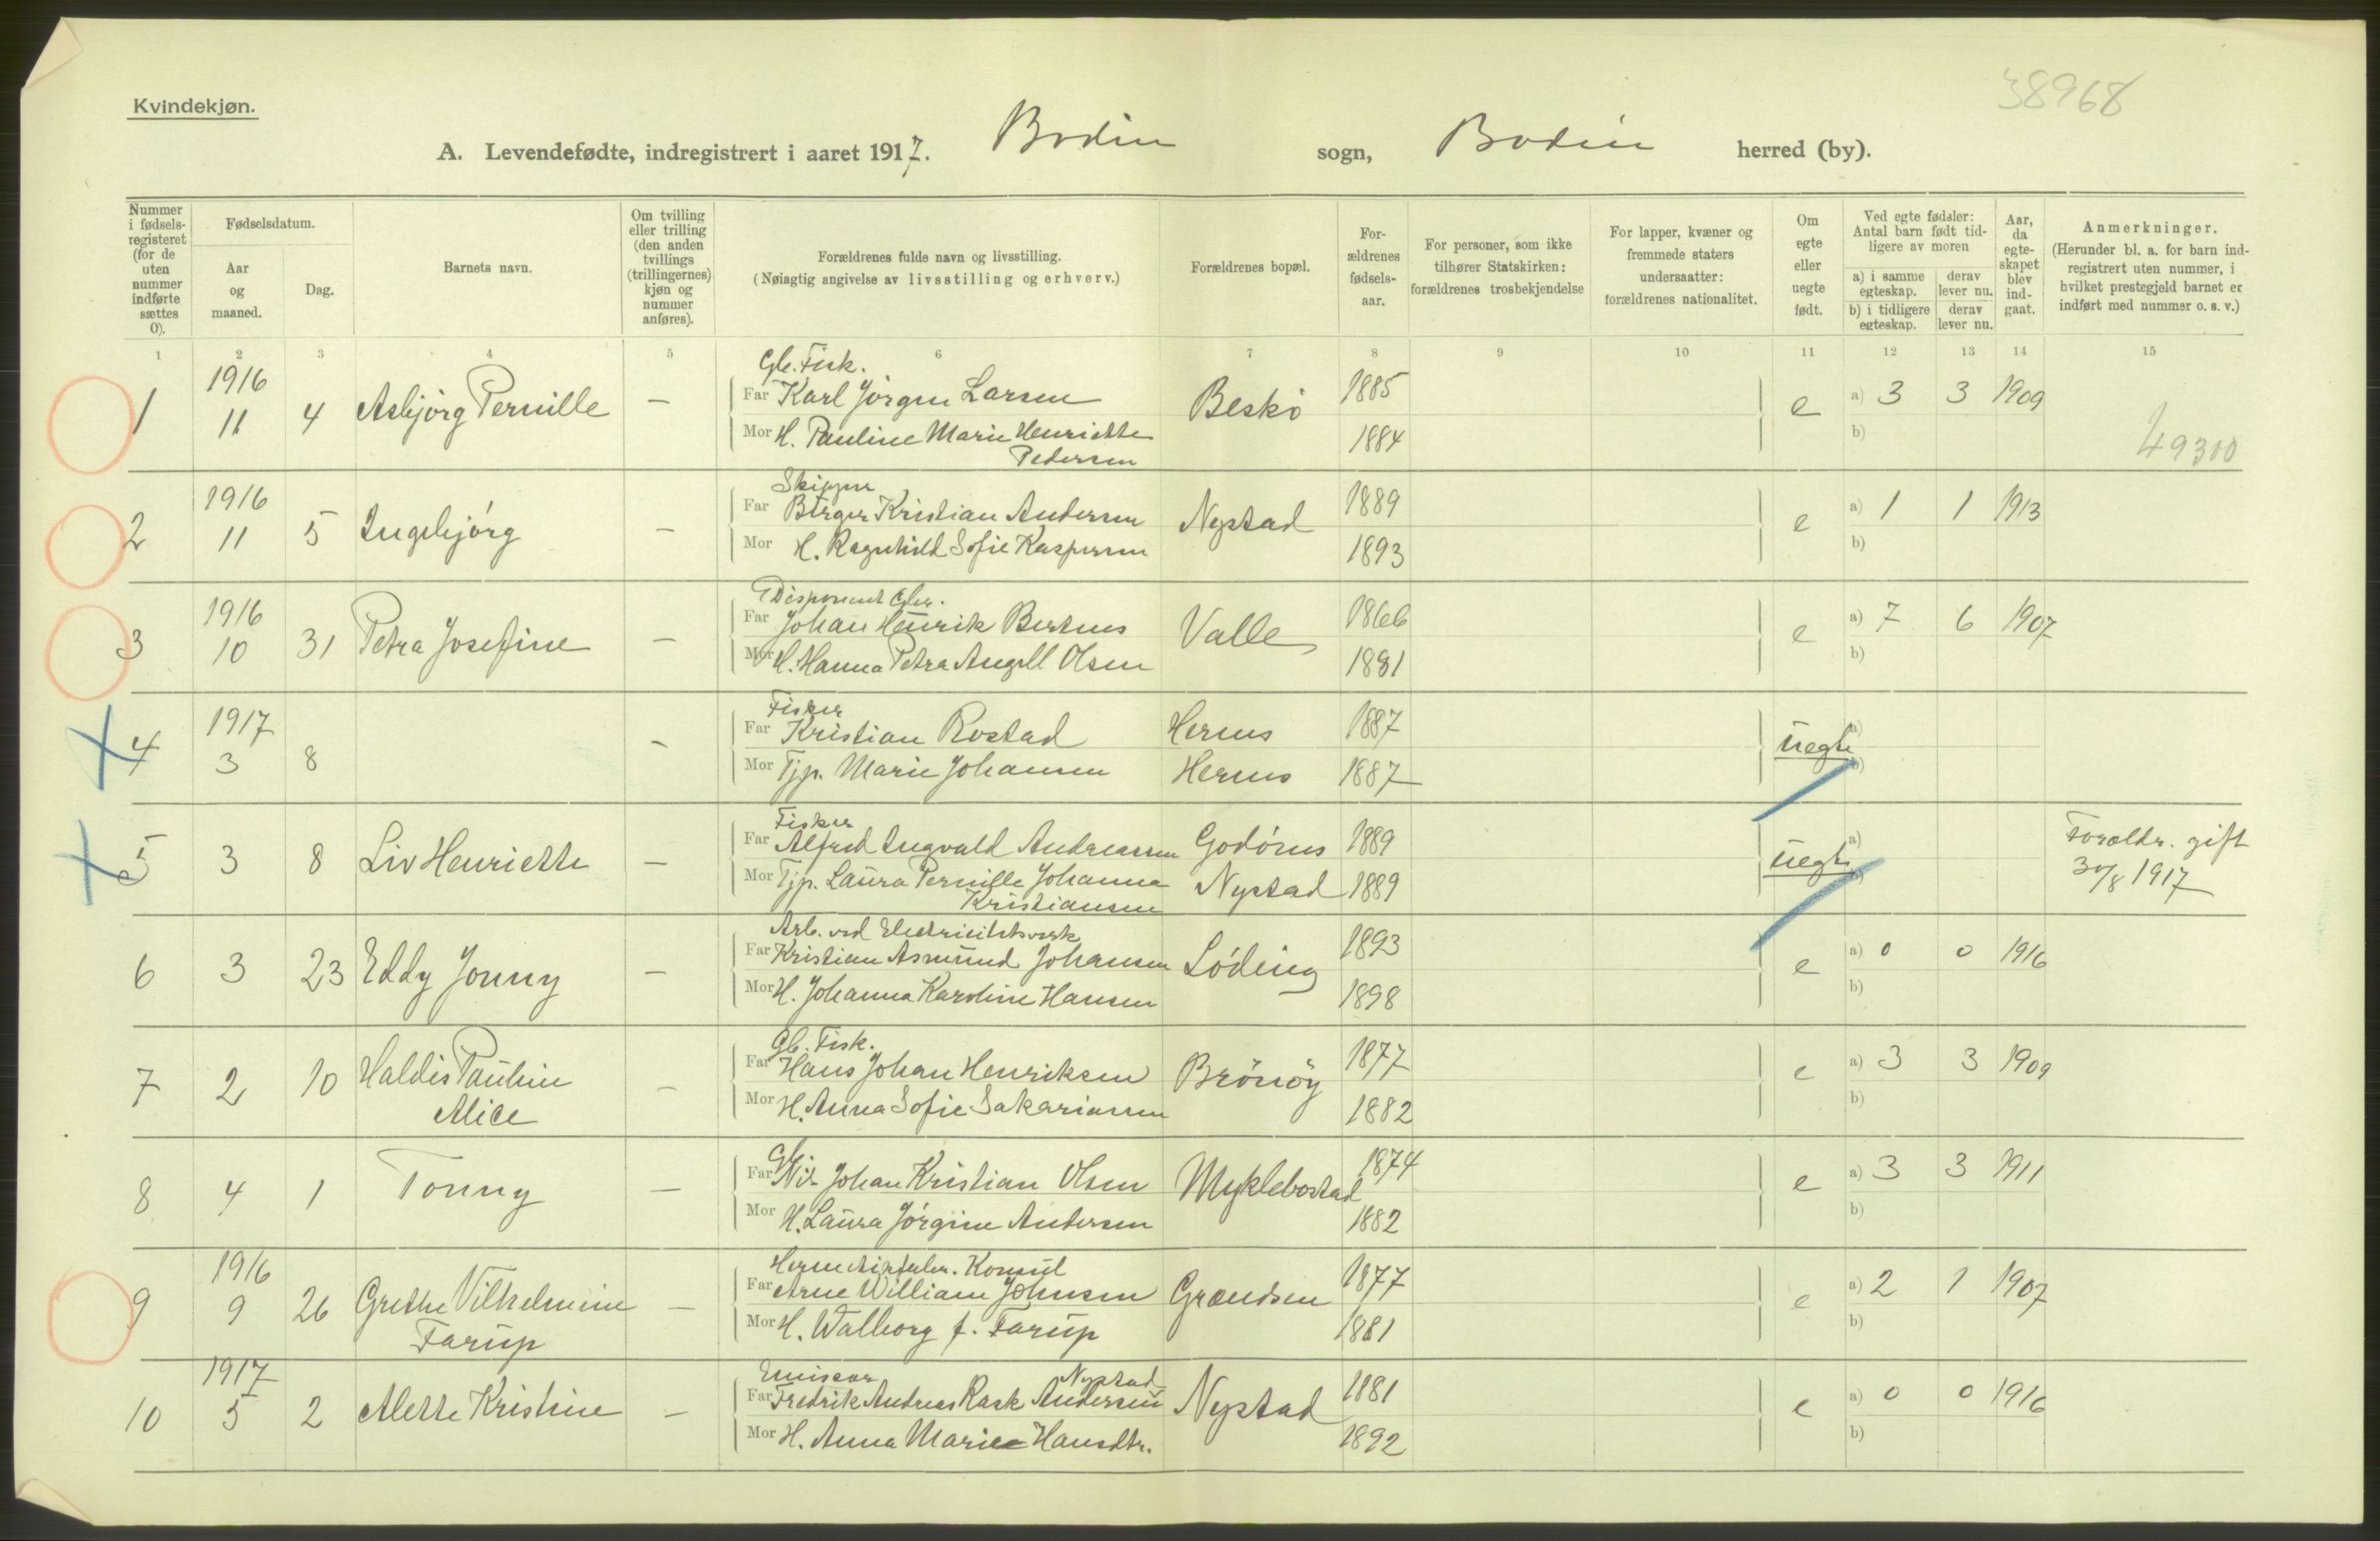 38968
Kvindekjøn.
A. Levendefødte, indregistrert i aaret 1917. Bodin sogn, Bodin herred (by).
Nummer i fødselsregisteret (for de uten nummer indførte sættes 0).
Fødselsdatum.
Aar og maaned.
Dag.
Barnets navn.
Om tvilling eller trilling (den anden tvillings (trillingernes) kjøn og nummer anføres).
Forældrenes fulde navn og livsstilling.
(Nøiagtig angivelse av livsstilling og erhverv.)
Forældrenes bopæl.
Forældrenes fødselsaar.
For personer, som ikke tilhører Statskirken: forældrenes trosbekjendelse
For lapper, kvæner og fremmede staters undersaatter: forældrenes nationalitet.
Om egte eller uegte født.
Ved egte fødsler: Antal barn født tidligere av moren
a) i samme egteskap. derav lever nu.
b) i tidligere egteskap. derav lever nu.
Aar, da egteskapet blev indgaat.
Anmerkninger.
(Herunder bl. a. for barn indregistrert uten nummer, i hvilket prestegjeld barnet er indført med nummer o. s. v.)
1 2 3 4 5 6 7 8 9 10 11 12 13 14 15
1916 Gb. Fisk.
1 11 4 Asbjørg Pernille — Far Karl Jørgen Larsen Beskø 1885 e a) 3 3 1909
Mor H. Pauline Marie Henriette 1884 b) 49300
Pedersen
1916 Skipper
2 11 5 Ingebjørg — Far Birger Kristian Andersen Nystad 1889 e a) 1 1 1913
Mor H. Ragnhild Sofie Kaspersen 1893 b)
1916 Disponent
3 10 31 Petra Josefine — Far Johan Henrik Bertnes Valle 1866 e a) 7 6 1907
Mor H. Hanna Petra Angell Olsen 1881 b)
1917 Fisker
4 3 8 — Far Kristian Rostad Hernes 1887 uegte a)
Mor Tjp. Marie Johansen Hernes 1887 b)
Fisker
5 3 8 Liv Henriette — Far Alfred Ingvald Andreassen Godønes 1889 uegte a) Forældr. gift
Mor Tjp. Laura Pernille Johanna Nystad 1889 b) 30/8 1917
Kristiansen
Arb. ved Electricitetsverk
6 3 23 Eddy Jonny — Far Kristian Asmund Johansen Løding 1893 e a) 0 0 1916
Mor H. Johanna Karoline Hansen 1898 b)
Gb. Fisk.
7 2 10 Haldis Pauline — Far Hans Johan Henriksen Brönöy 1877 e a) 3 3 1909
Alice Mor H. Anna Sofie Sakariassen 1882 b)
Gb.
8 4 1 Tonny — Far Nils Johan Kristian Olsen Myklebostad 1874 e a) 3 3 1911
Mor H. Laura Jørgine Andersen 1882 b)
1916 Konsul
9 9 26 Grethe Vilhelmine — Far Arne William Johnsen Grændsen 1877 e a) 2 1 1907
Farup Mor H. Walborg f. Farup 1881 b)
1917 Emissær Nystad
10 5 2 Alette Kristine — Far Fredrik Andreas Rask Andersen Nystad 1881 e a) 0 0 1916
Mor H. Anna Marie Hansdtr. 1892 b)